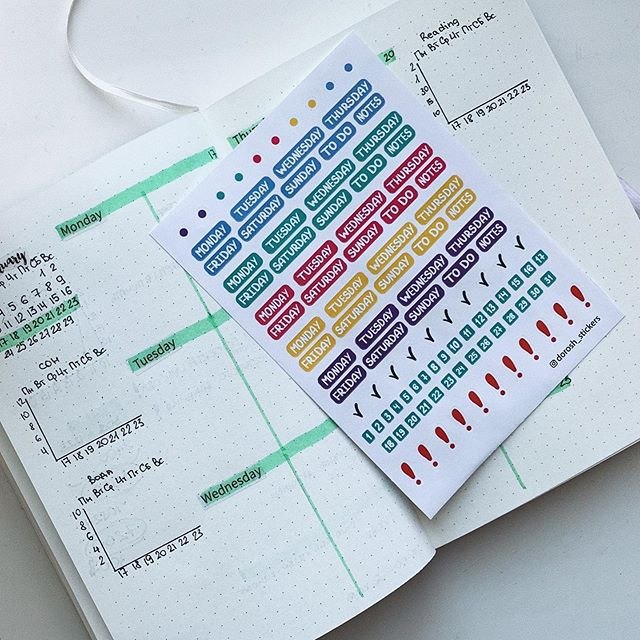 Monday
17
Пн Вт Ср Чт Пт Сб Вс
1 2
3 4 5 6 7 8 9
10 11 12 13 14 15 16
17 18 19 20 21 22 23
24 25 26 27 28 29
СОН
Пн Вт Ср Чт Пт Сб Вс
12
8
6
4
17 18 19 20 21 22 23
Вода
Пн Вт Ср Чт Пт Сб Вс
10
8
6
4
2
17 18 19 20 21 22 23
Tuesday
Wednesday
20
Reading
Пн Вт Ср Чт Пт Сб Вс
17 18 19 20 21 22 23
MONDAY TUESDAY WEDNESDAY THURSDAY
FRIDAY SATURDAY SUNDAY TO DO NOTES
MONDAY TUESDAY WEDNESDAY THURSDAY
FRIDAY SATURDAY SUNDAY TO DO NOTES
MONDAY TUESDAY WEDNESDAY THURSDAY
FRIDAY SATURDAY SUNDAY TO DO NOTES
MONDAY TUESDAY WEDNESDAY THURSDAY
FRIDAY SATURDAY SUNDAY TO DO NOTES
MONDAY TUESDAY WEDNESDAY THURSDAY
FRIDAY SATURDAY SUNDAY TO DO NOTES
1 2 3 4 5 6 7 8 9 10 11 12 13 14 15 16 17
18 19 20 21 22 23 24 25 26 27 28 29 30 31
! ! ! ! ! ! ! ! ! !
darash_stickers